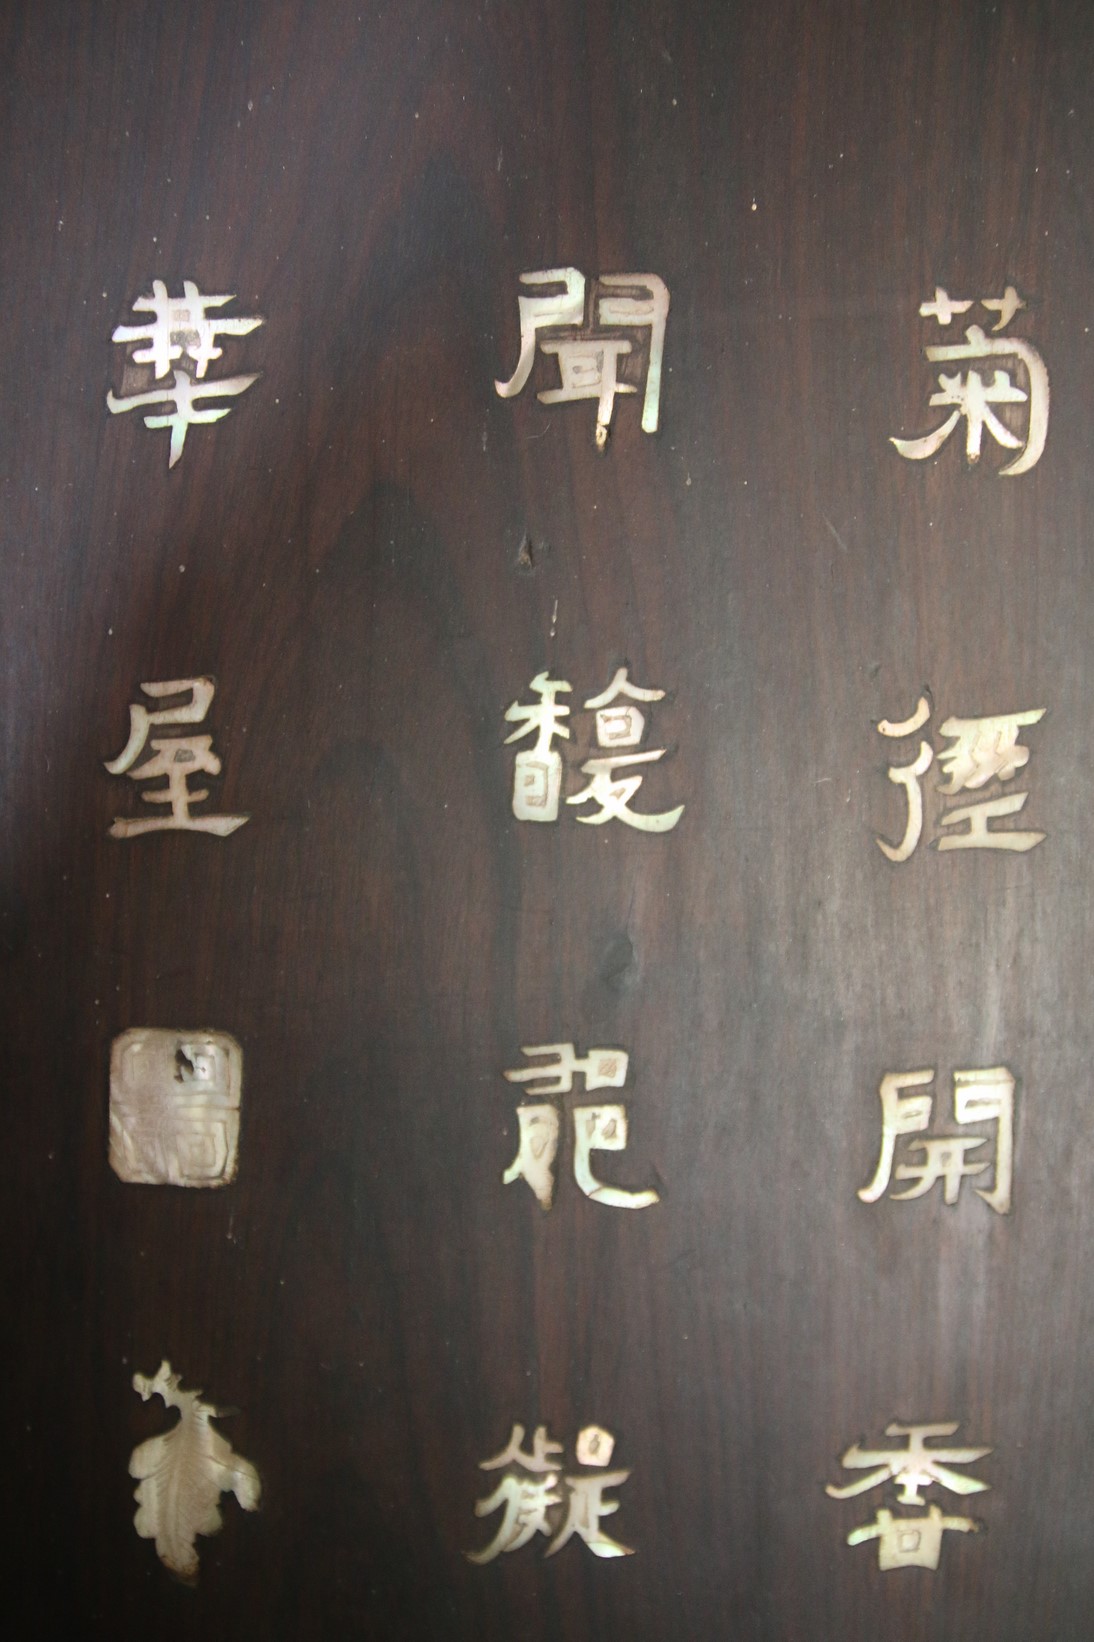 菊徑開香
聞馥
華屋